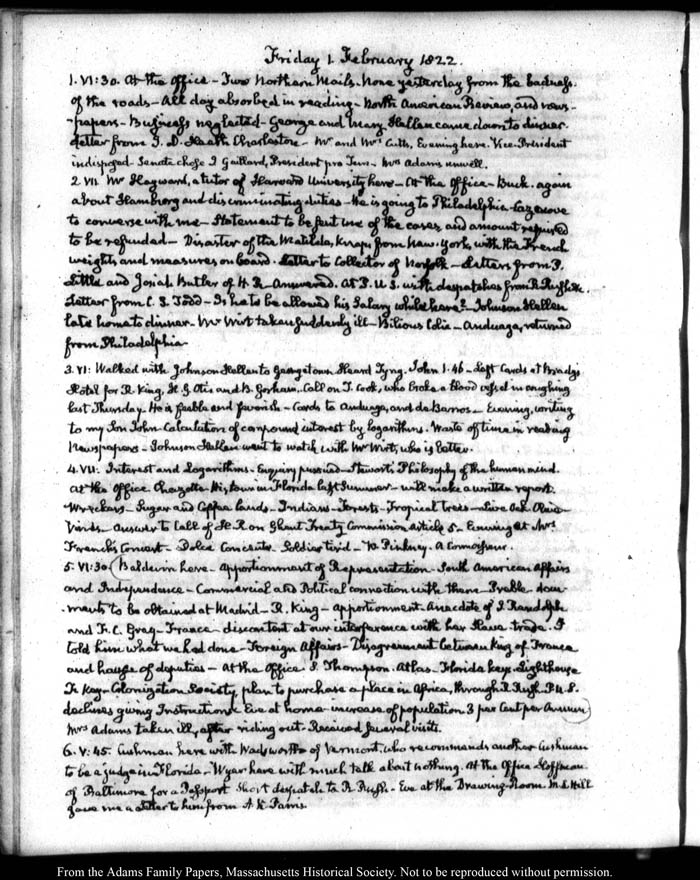 Friday 1. February 1822.
1. VI:30. At the Office - Two Northern Mails. None yesterday from the badness
of the roads - All day absorbed in reading - North American Review, and news-
-papers - Business neglected - George and Mary Hellen came down to dinner.
Letter from J. D. Heath Charleston - Mr and Mrs Cutts, Evening here. Vice-President
indisposed Senate chose J Gaillard, President pro Tem. Mrs Adams unwell.
2 VII. Mr Hayward, a tutor of Harvard University here - At the Office - Buck. again
about Hamburg and discriminating duties - he is going to Philadelphia - Cazenove
to converse with me - Statement to be sent me of the cases, and amount required
to be refunded - Disaster of the Matilda, Knap from New-York, with the French
weights and measures on board. Letter to Collector of Norfolk - Letters from P.
Little and Josiah Butler of H. R. Answered. At P. U. S. with despatches from R. Rush &c.
Letter from C. S. Todd - Is he to be allowed his Salary while here? - Johnson Hellen
late home to dinner - Mr Wirt taken suddenly ill - Bilious Colic - Anduaga, returned
from Philadelphia -
3. VI: Walked with Johnson Hellen to Georgetown Heard Tyng. John 1. 46 - Left Cards at
Hotel for R. King, H. G. Otis and B. Gorham, Call on T. Cook, who broke a blood vessel in coughing
last Thursday. He is feeble and feverish - Cards to Anduaga, and de Barros - Evening, writing
to my Son John - Calculation of compound interest by logarithms. Waste of time in reading
Newspapers - Johnson Hellen went to watch with Mr Wirt, who is better.
4. VII: Interest and Logarithms - Enquiry pursued - Stewart's Philosophy of the human mind.
At the Office Chazotte - his tour in Florida last Summer - will make a written report.
Wreckers - Sugar and Coffee lands - Indians - Forests - Tropical trees - Live Oak Olive
Vines - Answer to Call of H. R. on Ghent Treaty Commission Article 5 - Evening at Mrs
French's Concert - Dolce Concento. Soldier tir'd - W. Pinkney. A Connoisseur.
5. VI:30. (Baldwin here - Apportionment of Representation - South American Affairs
and Independence - Commercial and Political connection with them - Preble. docu-
-ments to be obtained at Madrid - R. King - apportionment. Anecdote of J. Randolph
and F. C. Gray - France - discontent at our interference with her Slave trade. I
told him what we had done - Foreign Affairs - Disagreement between King of France
and houses of deputies - At the Office S. Thompson. Atlas. Florida keys - Lighthouse
F. Key - Colonization Society, plan to purchase a place in Africa, through R Rush - P. U. S.
declines giving Instructions Eve at home - increase of population 3 per Cent per Annum)
Mrs Adams taken ill, after riding out - Received several visits.
6. V:45. Cushman here with Wadsworth of Vermont, who recommends another Cushman
to be a judge in Florida - Wyer here with much talk about nothing. At the Office Hoffman
of Baltimore for a Passport Short despatch to R Rush - Eve at the Drawing-Room. M. L. Hill
gave me a Letter to him from A K Parris.
From the Adams Family Papers, Massachusetts Historical Society. Not to be reproduced without permission.